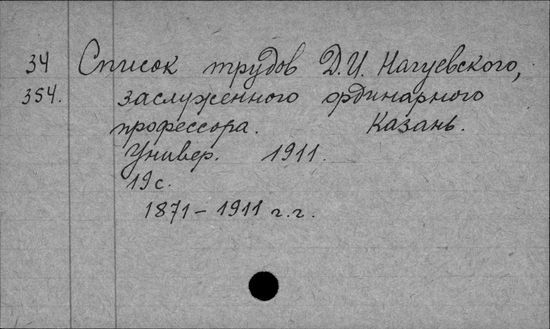 34 Список трудов Д.И. Нагуевского,
354. заслуженного ординарного
профессора. Казань.
Универ. 1911.
19 с.
1871 – 1911 г.г.